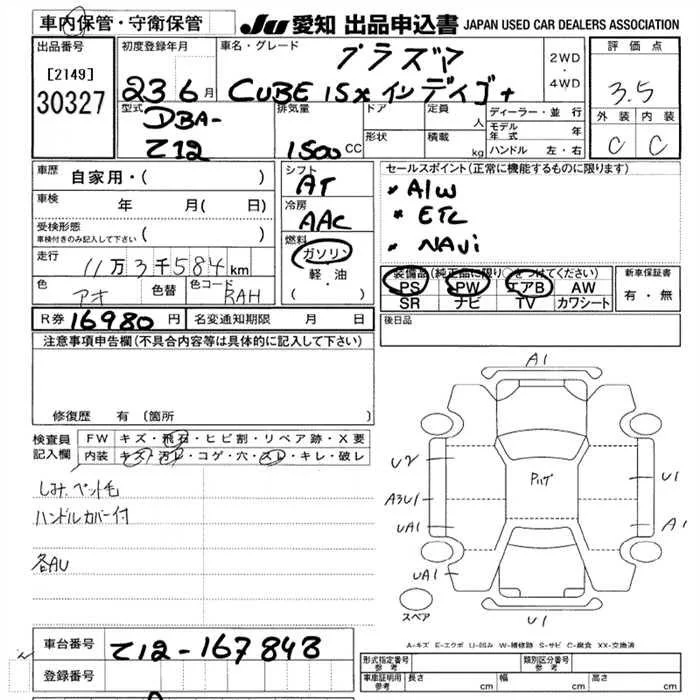 車内保管・守衛保管
JU 愛知 出品申込書 JAPAN USED CAR DEALERS ASSOCIATION
出品番号
[2149]
30327
初度登録年月
23 6 月
車名・グレード
プラズマ
CUBE 15X インディゴ+
2WD
・
4WD
評価点
3.5
外装 内装
C C
型式
DBA-
Z12
排気量
1500 CC
ドア
定員
人
形状
積載
kg
ディーラー・並行
モデル年式 年
ハンドル 左・右
車歴
自家用・( )
車検
年 月( 日)
受検形態
車検付きのみ記入して下さい
( )
走行
11万3千584km
色
アオ
色替
色コード
RAH
シフト
AT
冷房
AAC
燃料
ガソリン
軽・油
( )
セールスポイント(正常に機能するものに限ります)
* A/W
* ETC
* NAVi
装備品(純正品に限り○をつけてください)
PS PW エアB AW
SR ナビ TV カワシート
新車保証書
有・無
R券 16980 円
名変通知期限 月 日
後日品
注意事項申告欄(不具合内容等は具体的に記入して下さい)
修復歴 有(箇所
検査員
記入欄
FW キズ・飛石・ヒビ割・リペア跡・X要
内装 キズ・汚レ・コゲ・穴・スレ・キレ・破レ
しみ、ペット毛
ハンドルカバー付
各AU
A1
U2
A3U1
UA1
UA1
U1
A1
U1
スペア
A-キズ E-エクボ U-凹み W-補修跡 S-サビ C-腐食 XX-交換済
車台番号
Z12-167848
登録番号
形式指定番号
参考
類別区分番号
参考
車庫証明用
参考
長さ cm
幅 cm
高さ cm